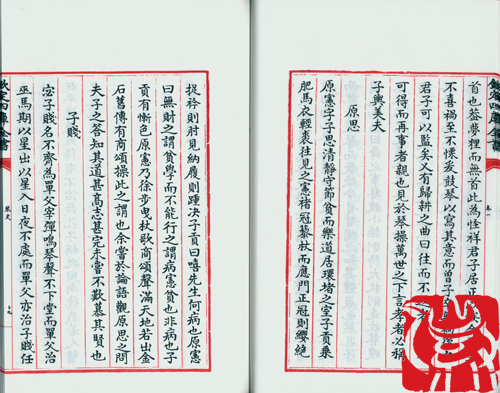 欽定四庫全書
卷一
首也蓋夢貍而無首此為恠祥君子居正以
不喜禍至不懷爰鼓琴以寫其意而曾子
君子可以監矣又有歸耕之曲曰往而不
可得而再事者親也見於琴操萬世之下言孝者必稱
子輿美夫
原思
原憲字子思清靜守節貧而樂道居環堵之室子貢乗
肥馬衣輕裘往見之憲楮冠藜杖而應門正冠則纓絶
捉衿則肘見納履則踵決子貢曰嘻先生何病也原憲
曰無財之謂貧學而不能行之謂病憲貧也非病也子
貢有慚色原憲乃徐步曳杖歌商頌聲滿天地若出金
石舊傳有商頌操此之謂也余嘗於論語觀原思之問
夫子之答知其道甚高志甚完未嘗不歎慕其賢也
子賤
宓子賤名不齊為單父宰彈鳴琴聲不下堂而單父治
巫馬期以星出以星入日夜不處而單父亦治子賤任
欽定四庫全書
琴史